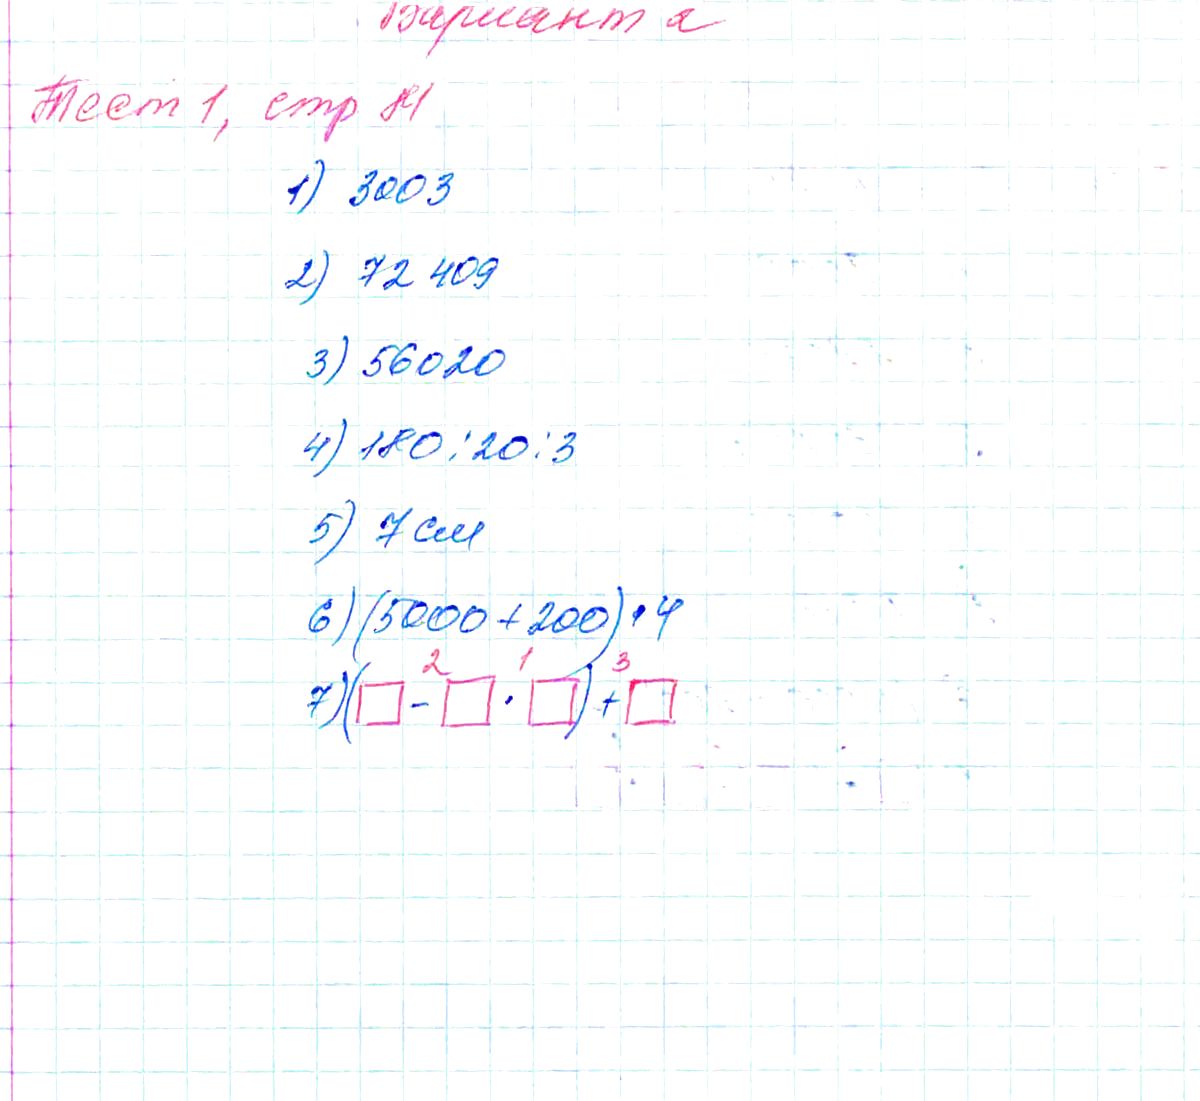 Вариант 2
Тест 1, стр 81
1) 3003
2) 72 409
3) 56020
4) 180:20:3
5) 7 см
6) (5000+200)·4
2 1 3
7) (□-□·□)+□